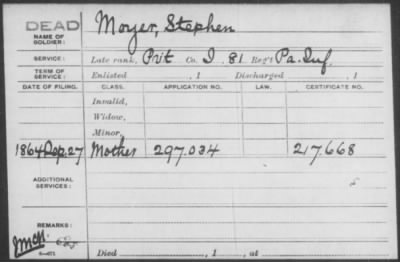 DEAD
NAME OF SOLDIER: Moyer, Stephen
SERVICE: Late rank, Prvt Co. I 81 Reg't Pa. Inf.
TERM OF SERVICE: Enlisted , 1 Discharged , 1
DATE OF FILING. CLASS. APPLICATION NO. LAW. CERTIFICATE NO.
Invalid,
Widow,
Minor,
1864 27 Mother 297.034 217.668
ADDITIONAL SERVICES:
REMARKS:
6—071 Died , 1 , at